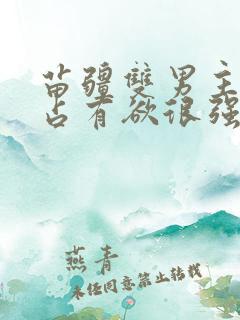 苗疆雙男主
占有欲很强
燕青
未经同意禁止转载